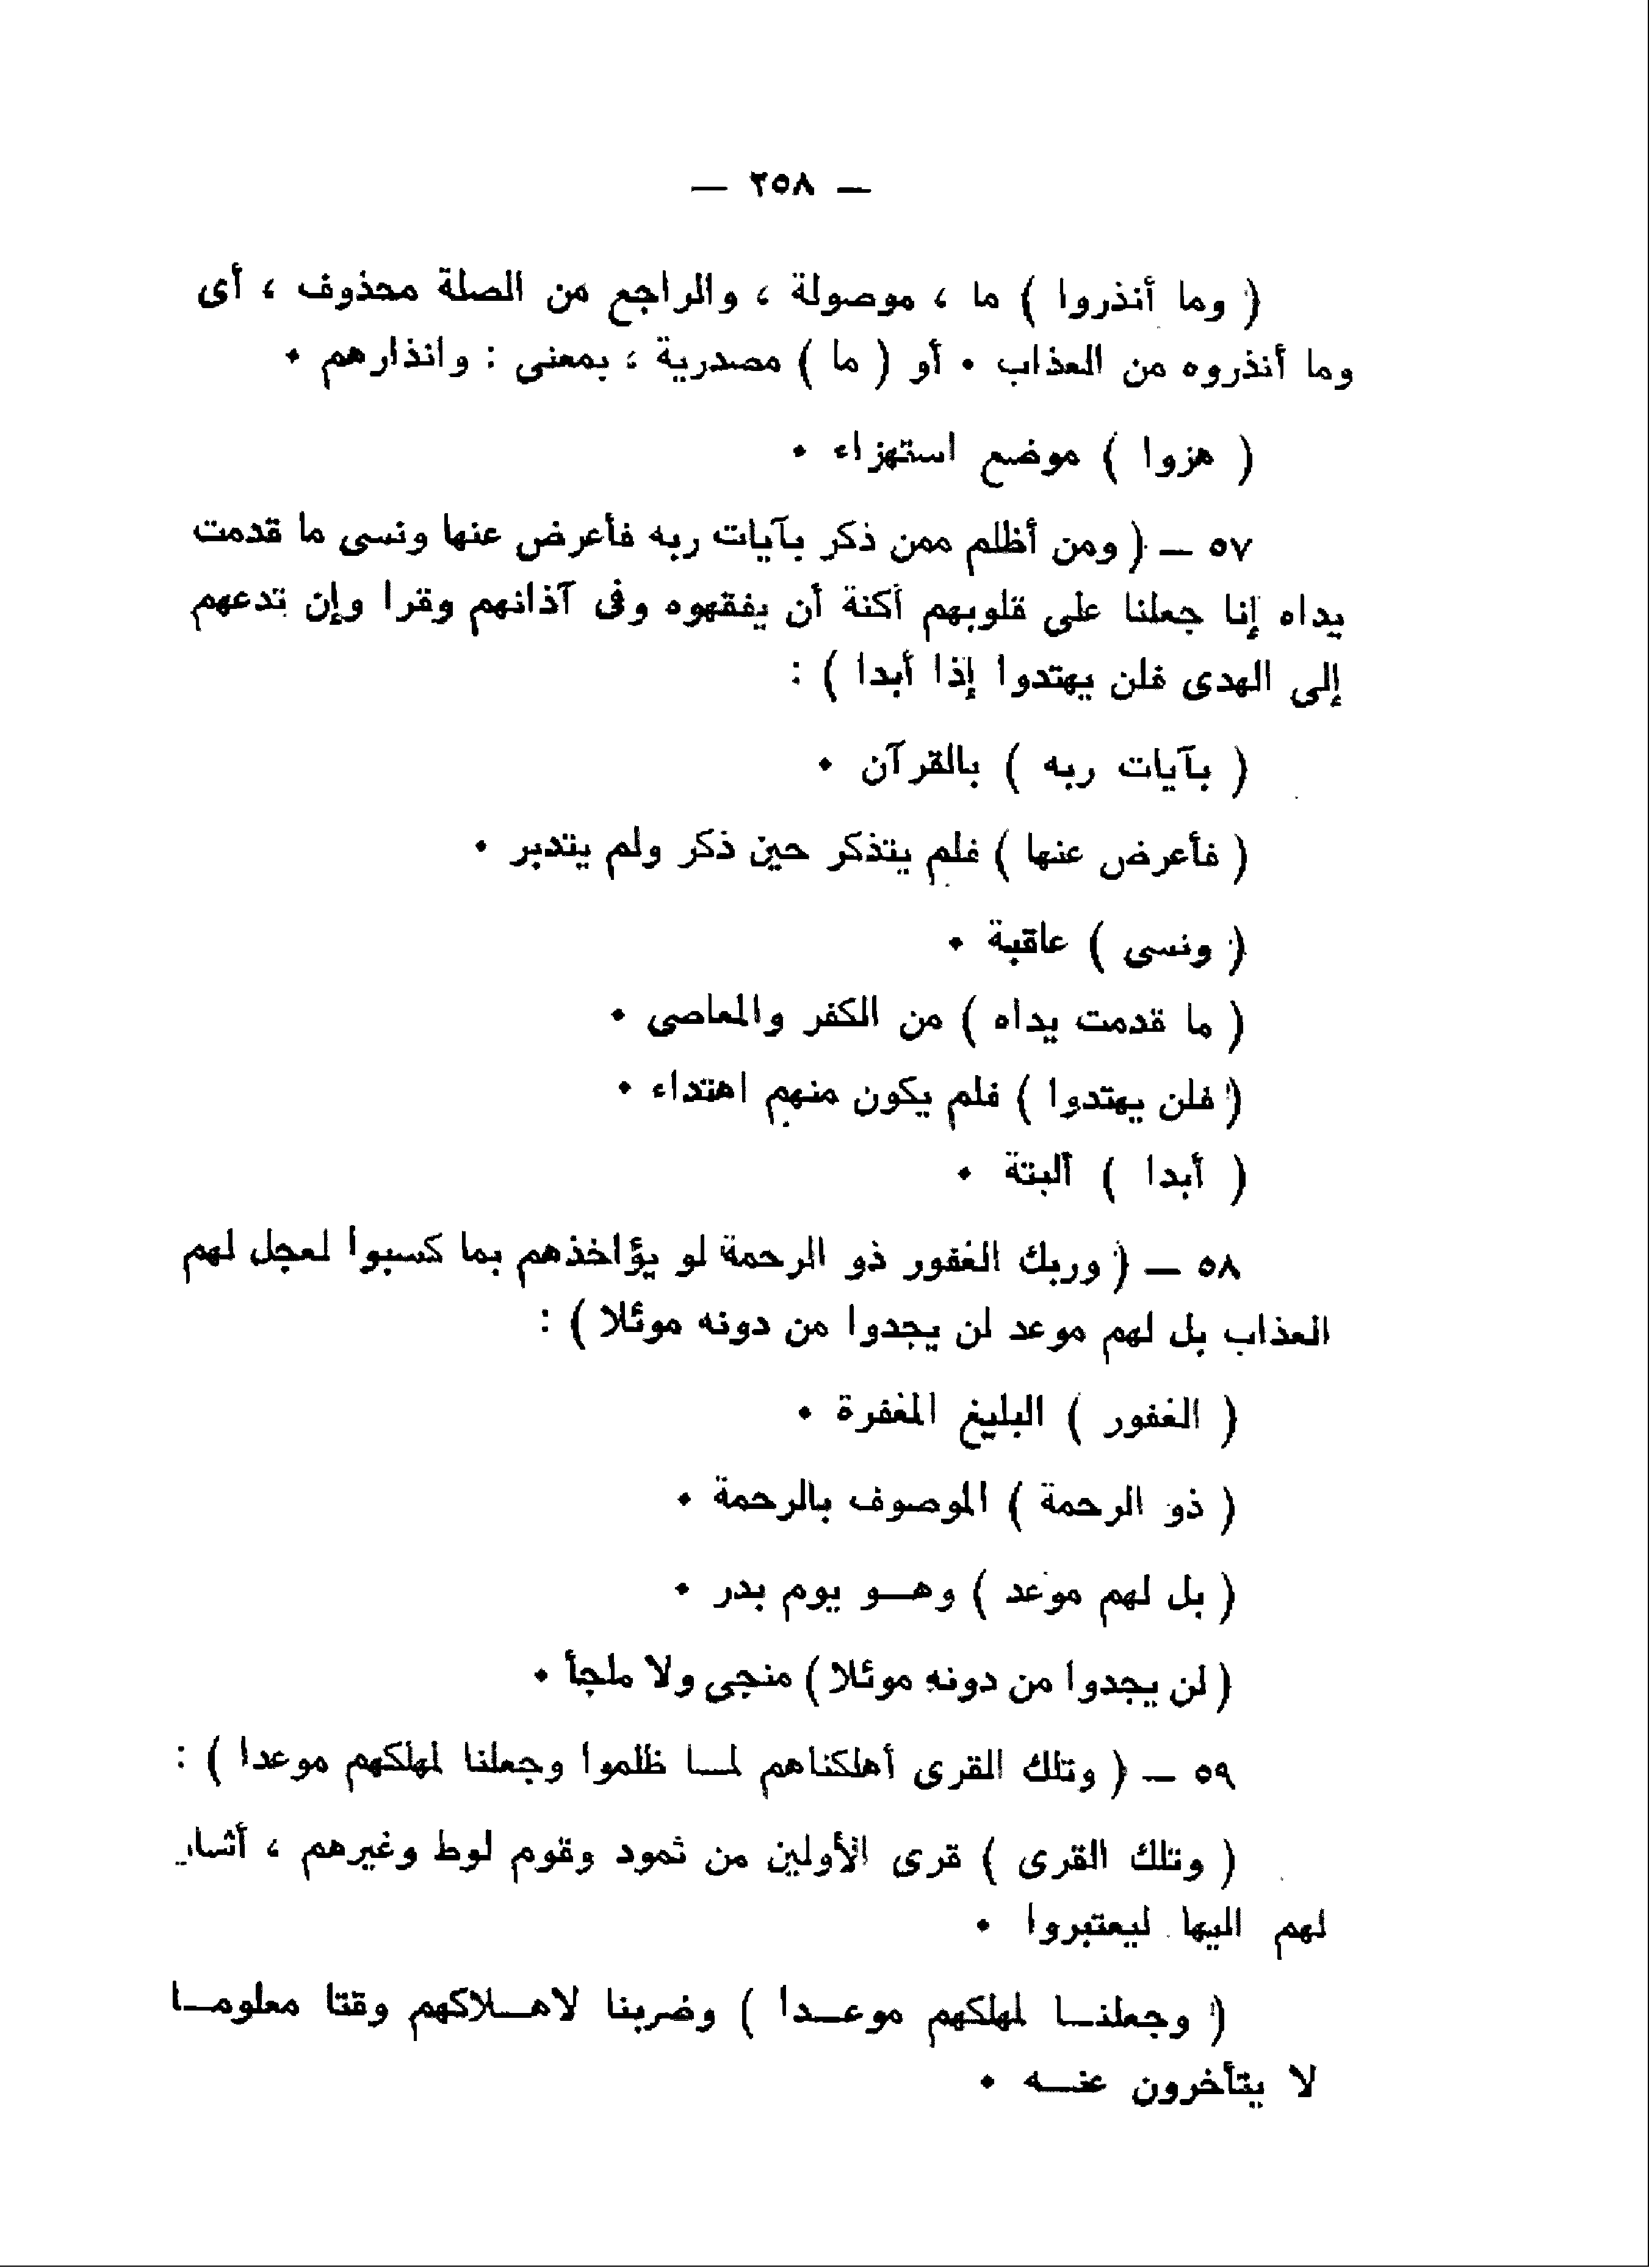 — ٢٥٨ —
( وما أنذروا ) ما ، موصولة ، والراجع من الصلة محذوف ، أى
وما أنذروه من العذاب ٠ أو ( ما ) مصدرية ، بمعنى : وانذارهم ٠
( هزوا ) موضع استهزاء ٠
٥٧ — ( ومن أظلم ممن ذكر بآيات ربه فأعرض عنها ونسى ما قدمت
يداه إنا جعلنا على قلوبهم أكنة أن يفقهوه وفى آذانهم وقرا وإن تدعهم
إلى الهدى فلن يهتدوا إذا أبدا ) :
( بآيات ربه ) بالقرآن ٠
( فأعرض عنها ) فلم يتذكر حين ذكر ولم يتدبر ٠
( ونسى ) عاقبة ٠
( ما قدمت يداه ) من الكفر والمعاصى ٠
( فلن يهتدوا ) فلم يكون منهم اهتداء ٠
( أبدا ) ألبتة ٠
٥٨ — ( وربك الغفور ذو الرحمة لو يؤاخذهم بما كسبوا لعجل لهم
العذاب بل لهم موعد لن يجدوا من دونه موئلا ) :
( الغفور ) البليغ المغفرة ٠
( ذو الرحمة ) الموصوف بالرحمة ٠
( بل لهم موعد ) وهـــو يوم بدر ٠
( لن يجدوا من دونه موئلا ) منجى ولا ملجأ ٠
٥٩ — ( وتلك القرى أهلكناهم لمـــا ظلموا وجعلنا لمهلكهم موعدا ) :
( وتلك القرى ) قرى الأولين من ثمود وقوم لوط وغيرهم ، أشار
لهم اليها ليعتبروا ٠
( وجعلنـــا لمهلكهم موعـــدا ) وضربنا لاهـــلاكهم وقتا معلومـــا
لا يتأخرون عنـــه ٠